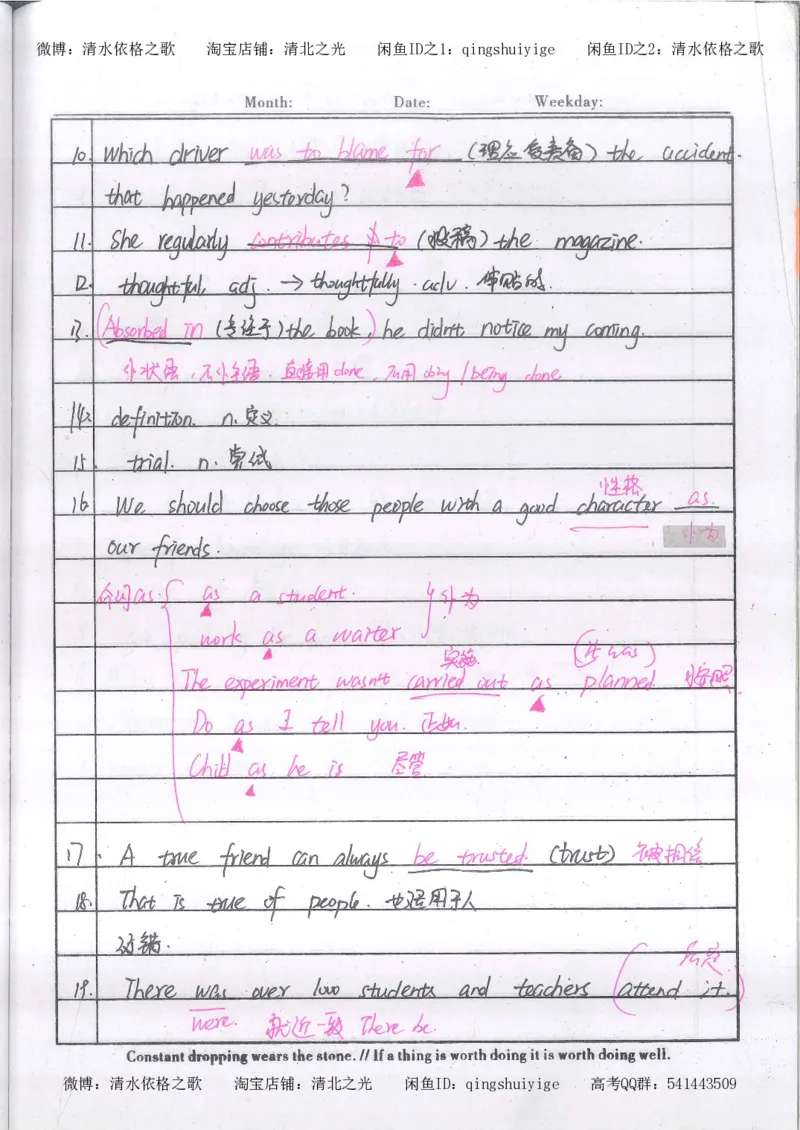 微博：清水依格之歌 淘宝店铺：清北之光 闲鱼ID之1：qingshuiyige 闲鱼ID之2：清水依格之歌
Month: Date: Weekday:
10. Which driver was to blame for (理应受责备) the accident
that happened yesterday?
11. She regularly contributes to (投稿) the magazine.
12. thoughtful. adj. → thoughtfully. adv. 体贴的.
13. (Absorbed in (专注于) the book) he didn't notice my coming.
作状语，不作主语，直接用done，不用doing / being done
14. definition. n. 定义
15. trial. n. 尝试
性格
16. We should choose those people with a good character as.
作为
our friends.
介词as.
as a student.
作为
work as a waiter
实施 (it was)
The experiment wasn't carried out as planned 按照
Do as I tell you. 正如.
Child as he is 尽管
17. A true friend can always be trusted. (trust) 被相信
18. That is true of people. 也适用于人
对错.
后定
19. There was over 1000 students and teachers (attend it.)
were. 就近一致 There be.
Constant dropping wears the stone. // If a thing is worth doing it is worth doing well.
微博：清水依格之歌 淘宝店铺：清北之光 闲鱼ID：qingshuiyige 高考QQ群：541443509